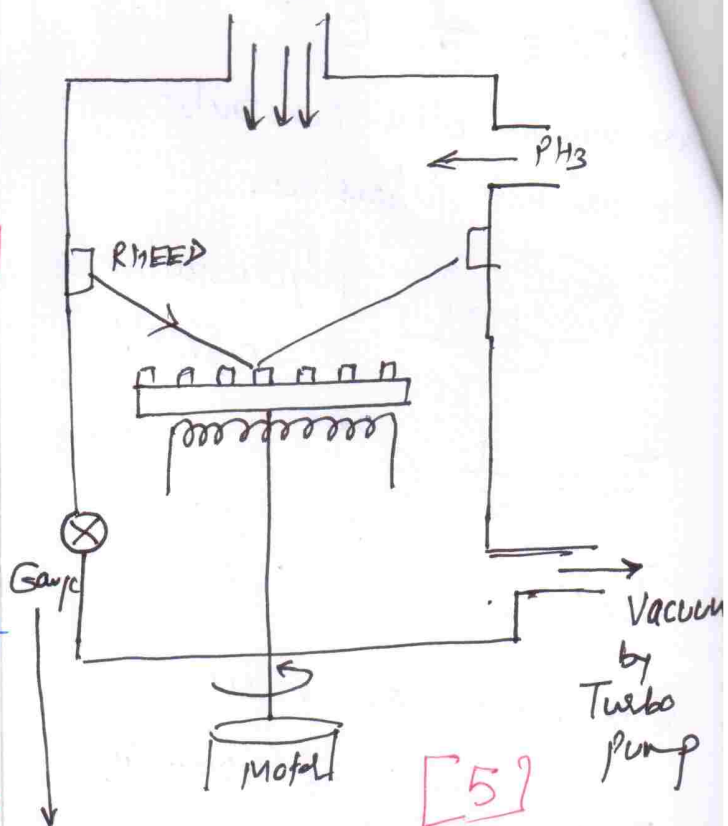 PH3
RHEED
Gauge
Vacuum
by
Turbo
Pump
Motor
[5]